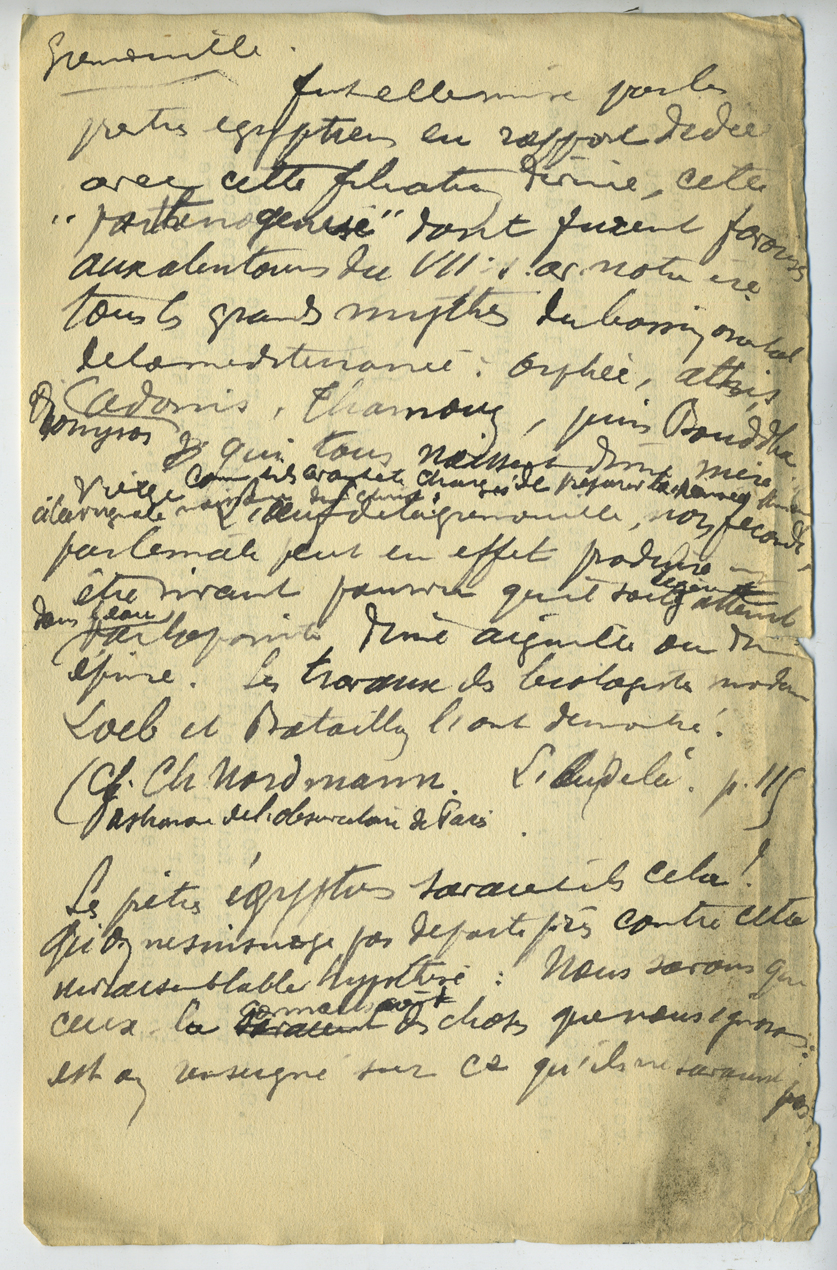 Grenouille.
fut elle mise par les
pretres egyptiens en rapport
avec cette filiation divine, cette
"parthenogenese" dont furent favorisés
aux alentours du VII s. av. notre ère
tous les grands mythes du bassin oriental
de la mediterranée : Orphée, attis,
Dionysos
adonis, Thamouz, puis Bouddha
qui tous naissent d'une mère
Vierge comme s'ils avaient été chargés de préparer
à la virginale naissance
L'œuf de la grenouille, non fécondé,
par le male peut en effet produire un
être vivant pourvu qu'il soit
dans l'eau
par la pointe d'une aiguille ou d'une
épine. Les travaux des biologistes modernes
Loeb et Bataillon l'ont demontré.
(Cf. Ch Nordmann. L'Au delà. p. 115
astronome de l'observatoire de Paris
Les prêtres égyptiens savaient ils cela!
Qu'on ne s'insurge pas de parti pris contre cette
invraisemblable hypothèse : Nous savons que
ceux là des choses que nous ignorons :
est on renseigné sur ce qu'ils ne savaient
pas.